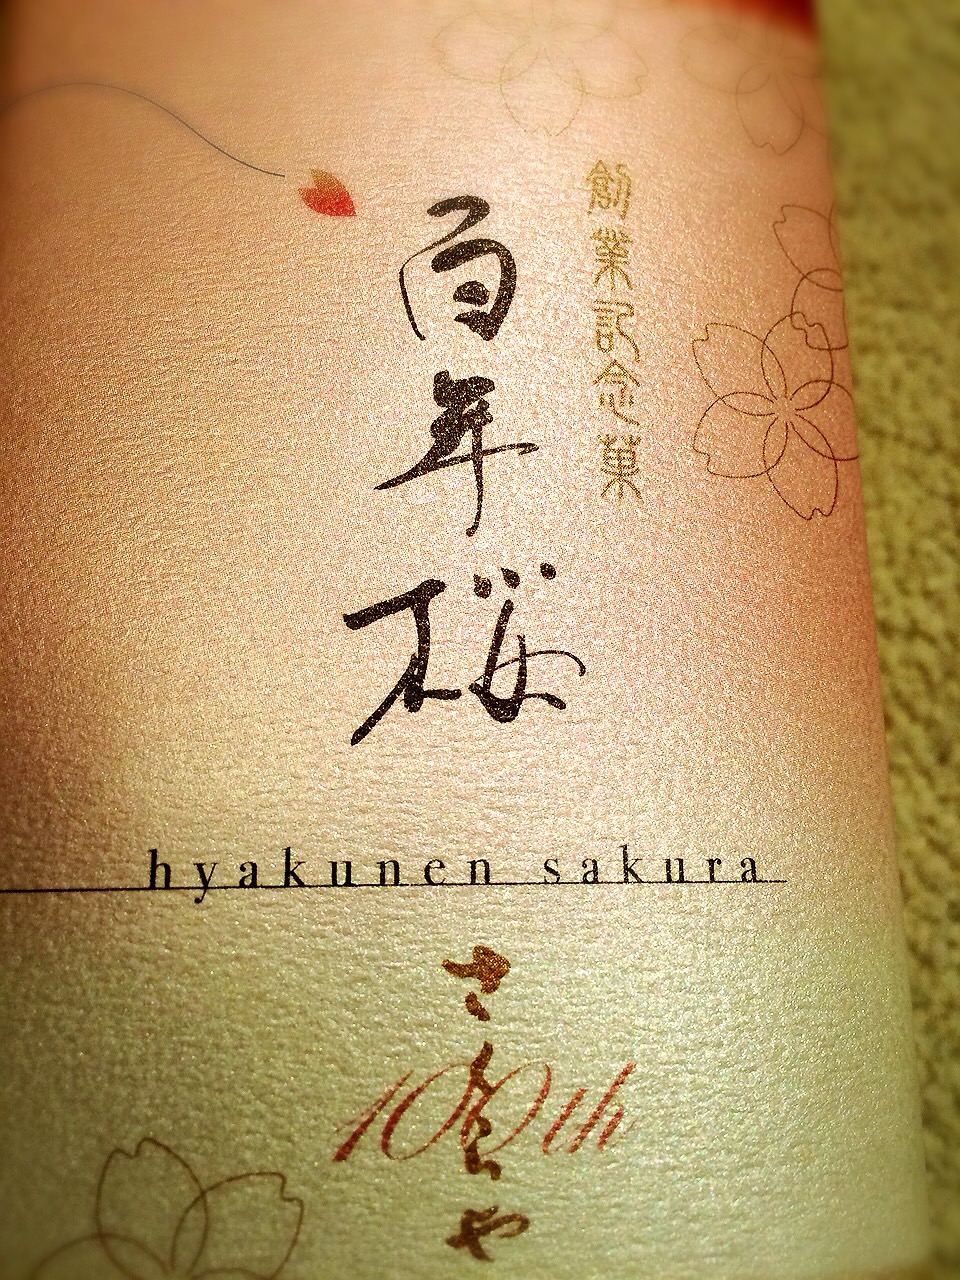 創業記念菓
百年桜
hyakunen sakura
100th